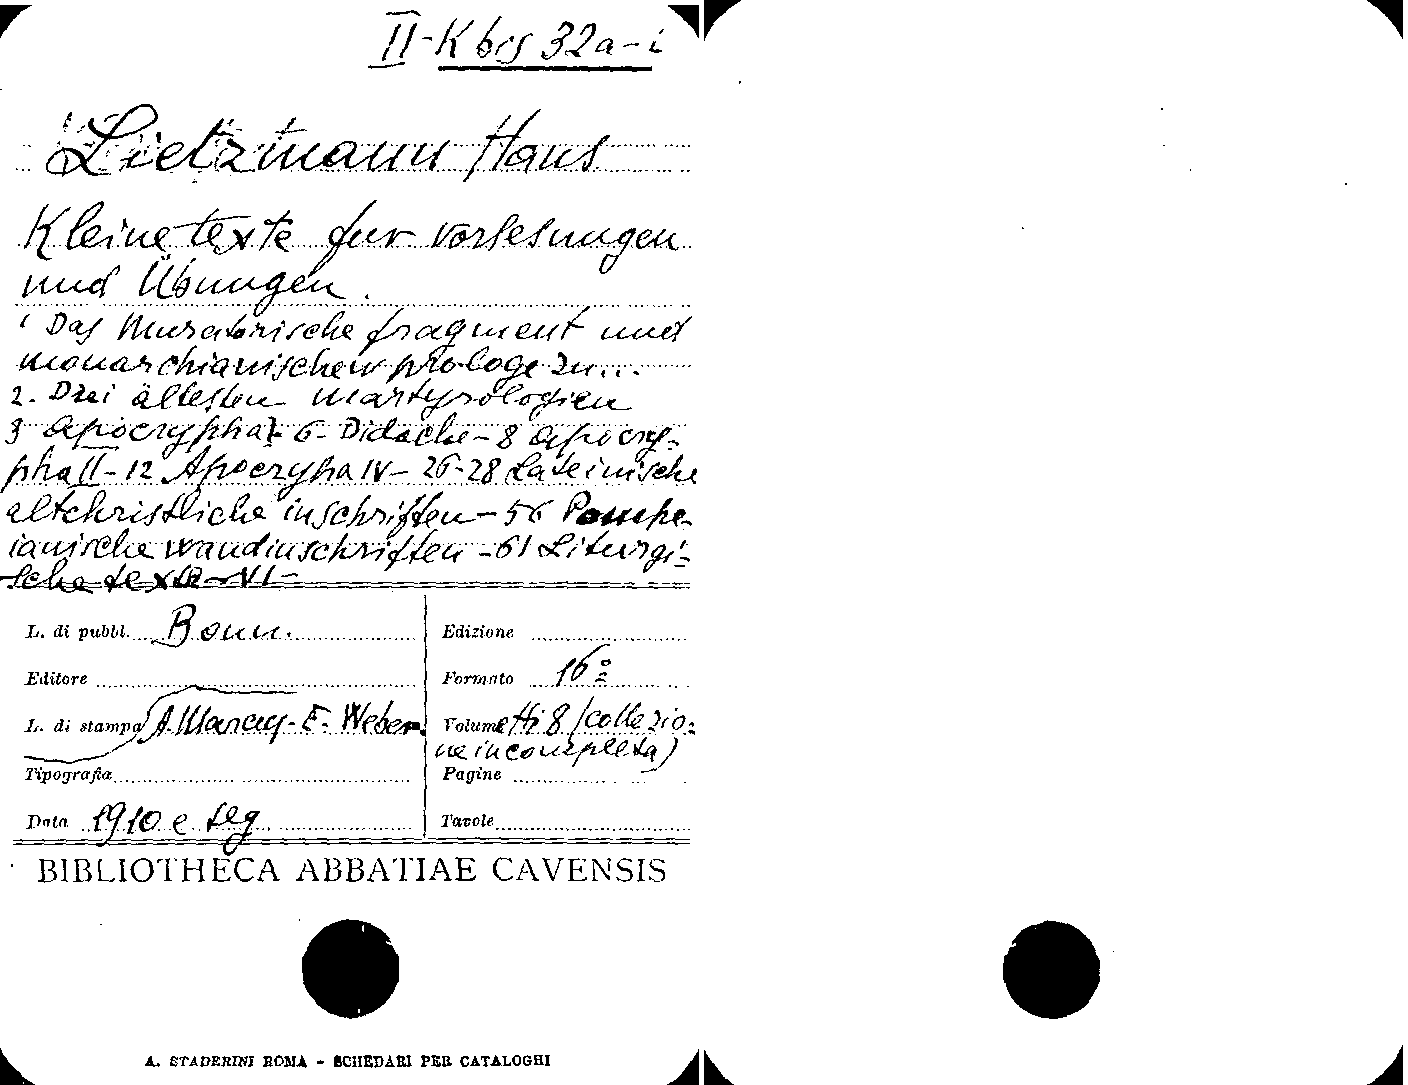 II-K bis 32a-i
Lietzmann Hans
Kleine texte fur vorlesungen
und Übungen.
1 Das Muratorische fragment und
monarchianischen prologe zu...
2. Drei ältesten martyrologien
3 Apocrypha I- 6- Didache- 8 Apocry-
pha II- 12 Apocrypha IV- 26-28 Lateinische
altchristliche inschriften- 56 Pompe-
ianische wandinschriften -61 Liturgi-
sche texte- VI-
L. di pubbl. Bonn.
Edizione
Editore
Formato 16º
L. di stampa A. Marcus- E. Weber.
Volumetti 8 (collezio-
ne incompleta)
Tipografia
Pagine
Data 1910 e seg
Tavole
BIBLIOTHECA ABBATIAE CAVENSIS
A. STADERINI ROMA - SCHEDARI PER CATALOGHI